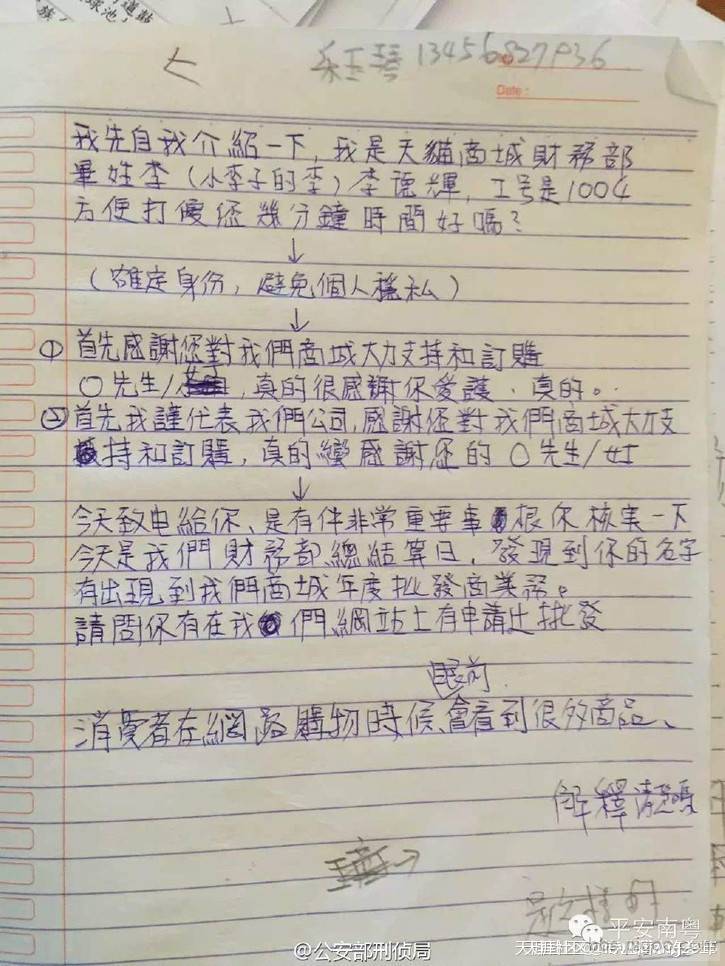 13456827036
Date:
我先自我介紹一下，我是天貓商城財務部
畢姓李（小李子的李）李德輝，工号是1004
方便打優您幾分鐘時間好嗎？
↓
（確定身份，避免個人穩私）
↓
① 首先感謝您對我們商城大力支持和訂購
〇先生/，真的很感謝你愛護、真的。
② 首先我謹代表我們公司，感謝您對我們商城大力支
持和訂購，真的蠻感謝您的〇先生/女士
↓
今天致电給你、是有件非常重要事 根你核实一下
今天是我們財務部總結算日，發現到你的名字
有出現到我們商城年度批發商業務。
請問你有在我們網站上有申請过批發
眼前
消費者在網路購物時候、會看到很多商品、
解釋清楚嗎
@公安部刑侦局
平安南粤